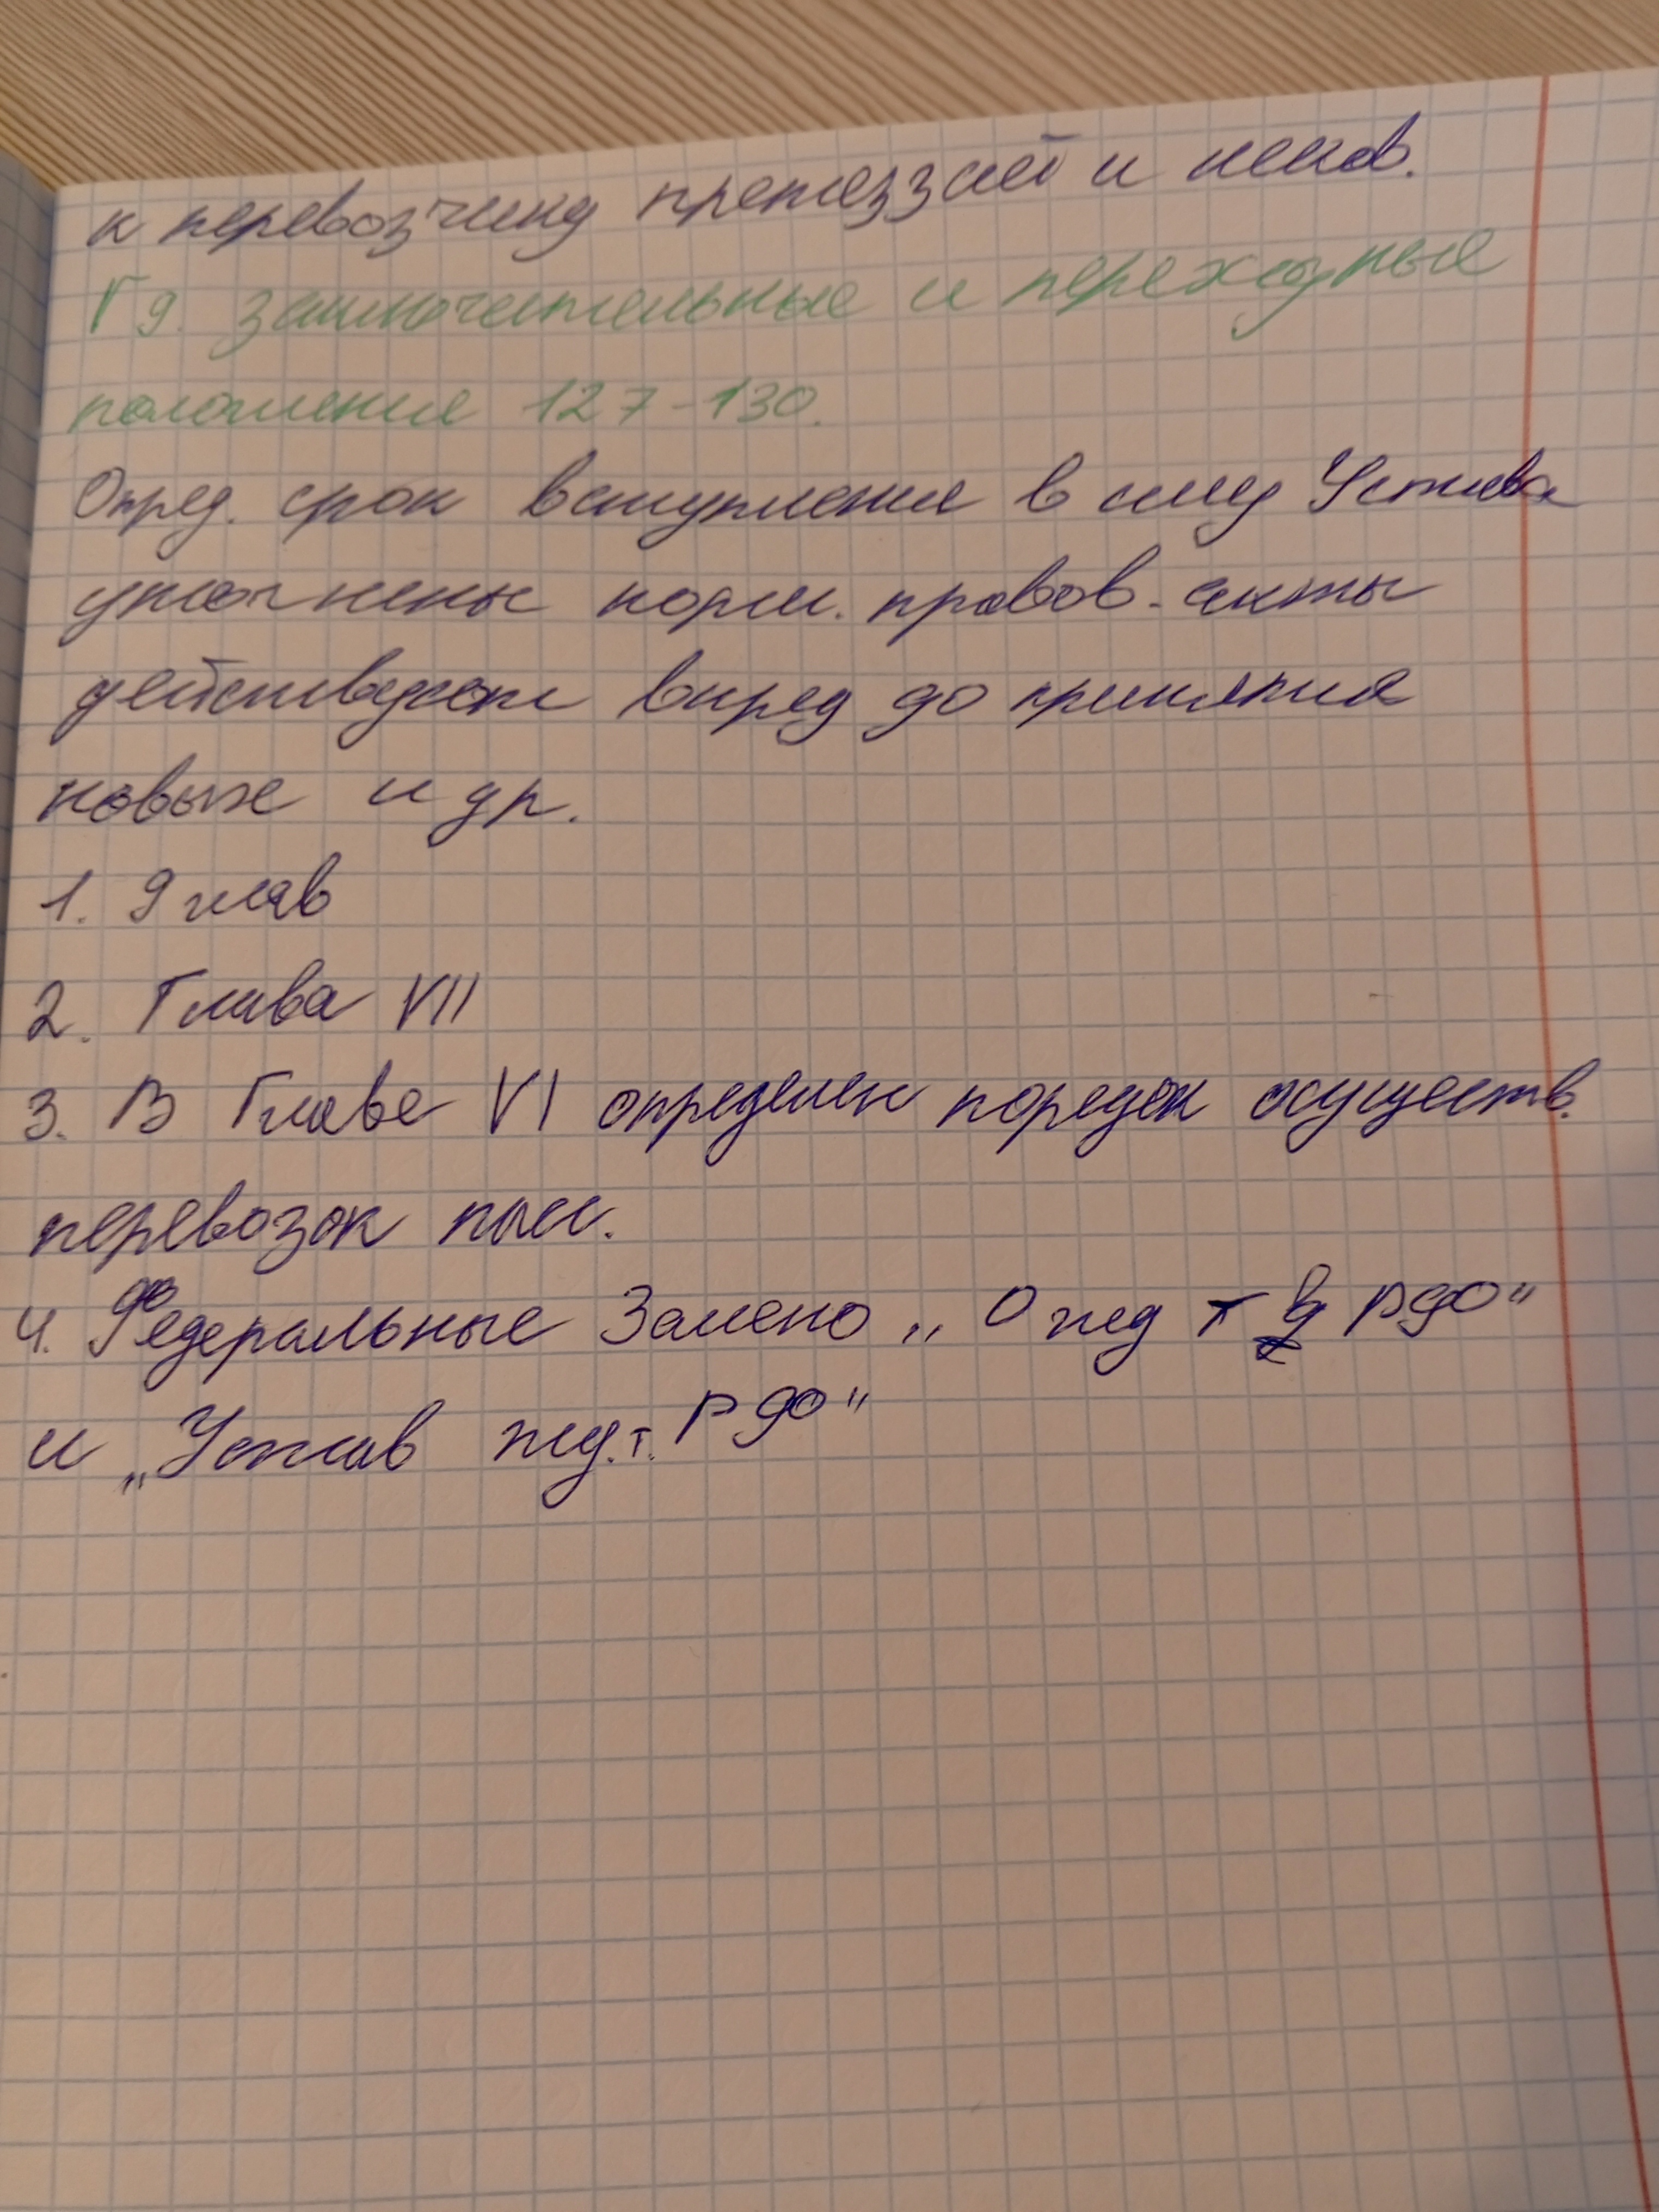 к перевозчику претеззией и исков.
Г 9. заключительные и переходные
положения 127-130.
Опред. срок вступления в силу Устава
уточнены норм. правов. акты
действующие впред до принятия
новых и др.
1. 9 глав
2. Глава VII
3. В Главе VI определен порядок осуществ.
перевозок пасс.
4. Федеральные Законо „О жд т в РФ“
и „Устав жд.т. РФ“